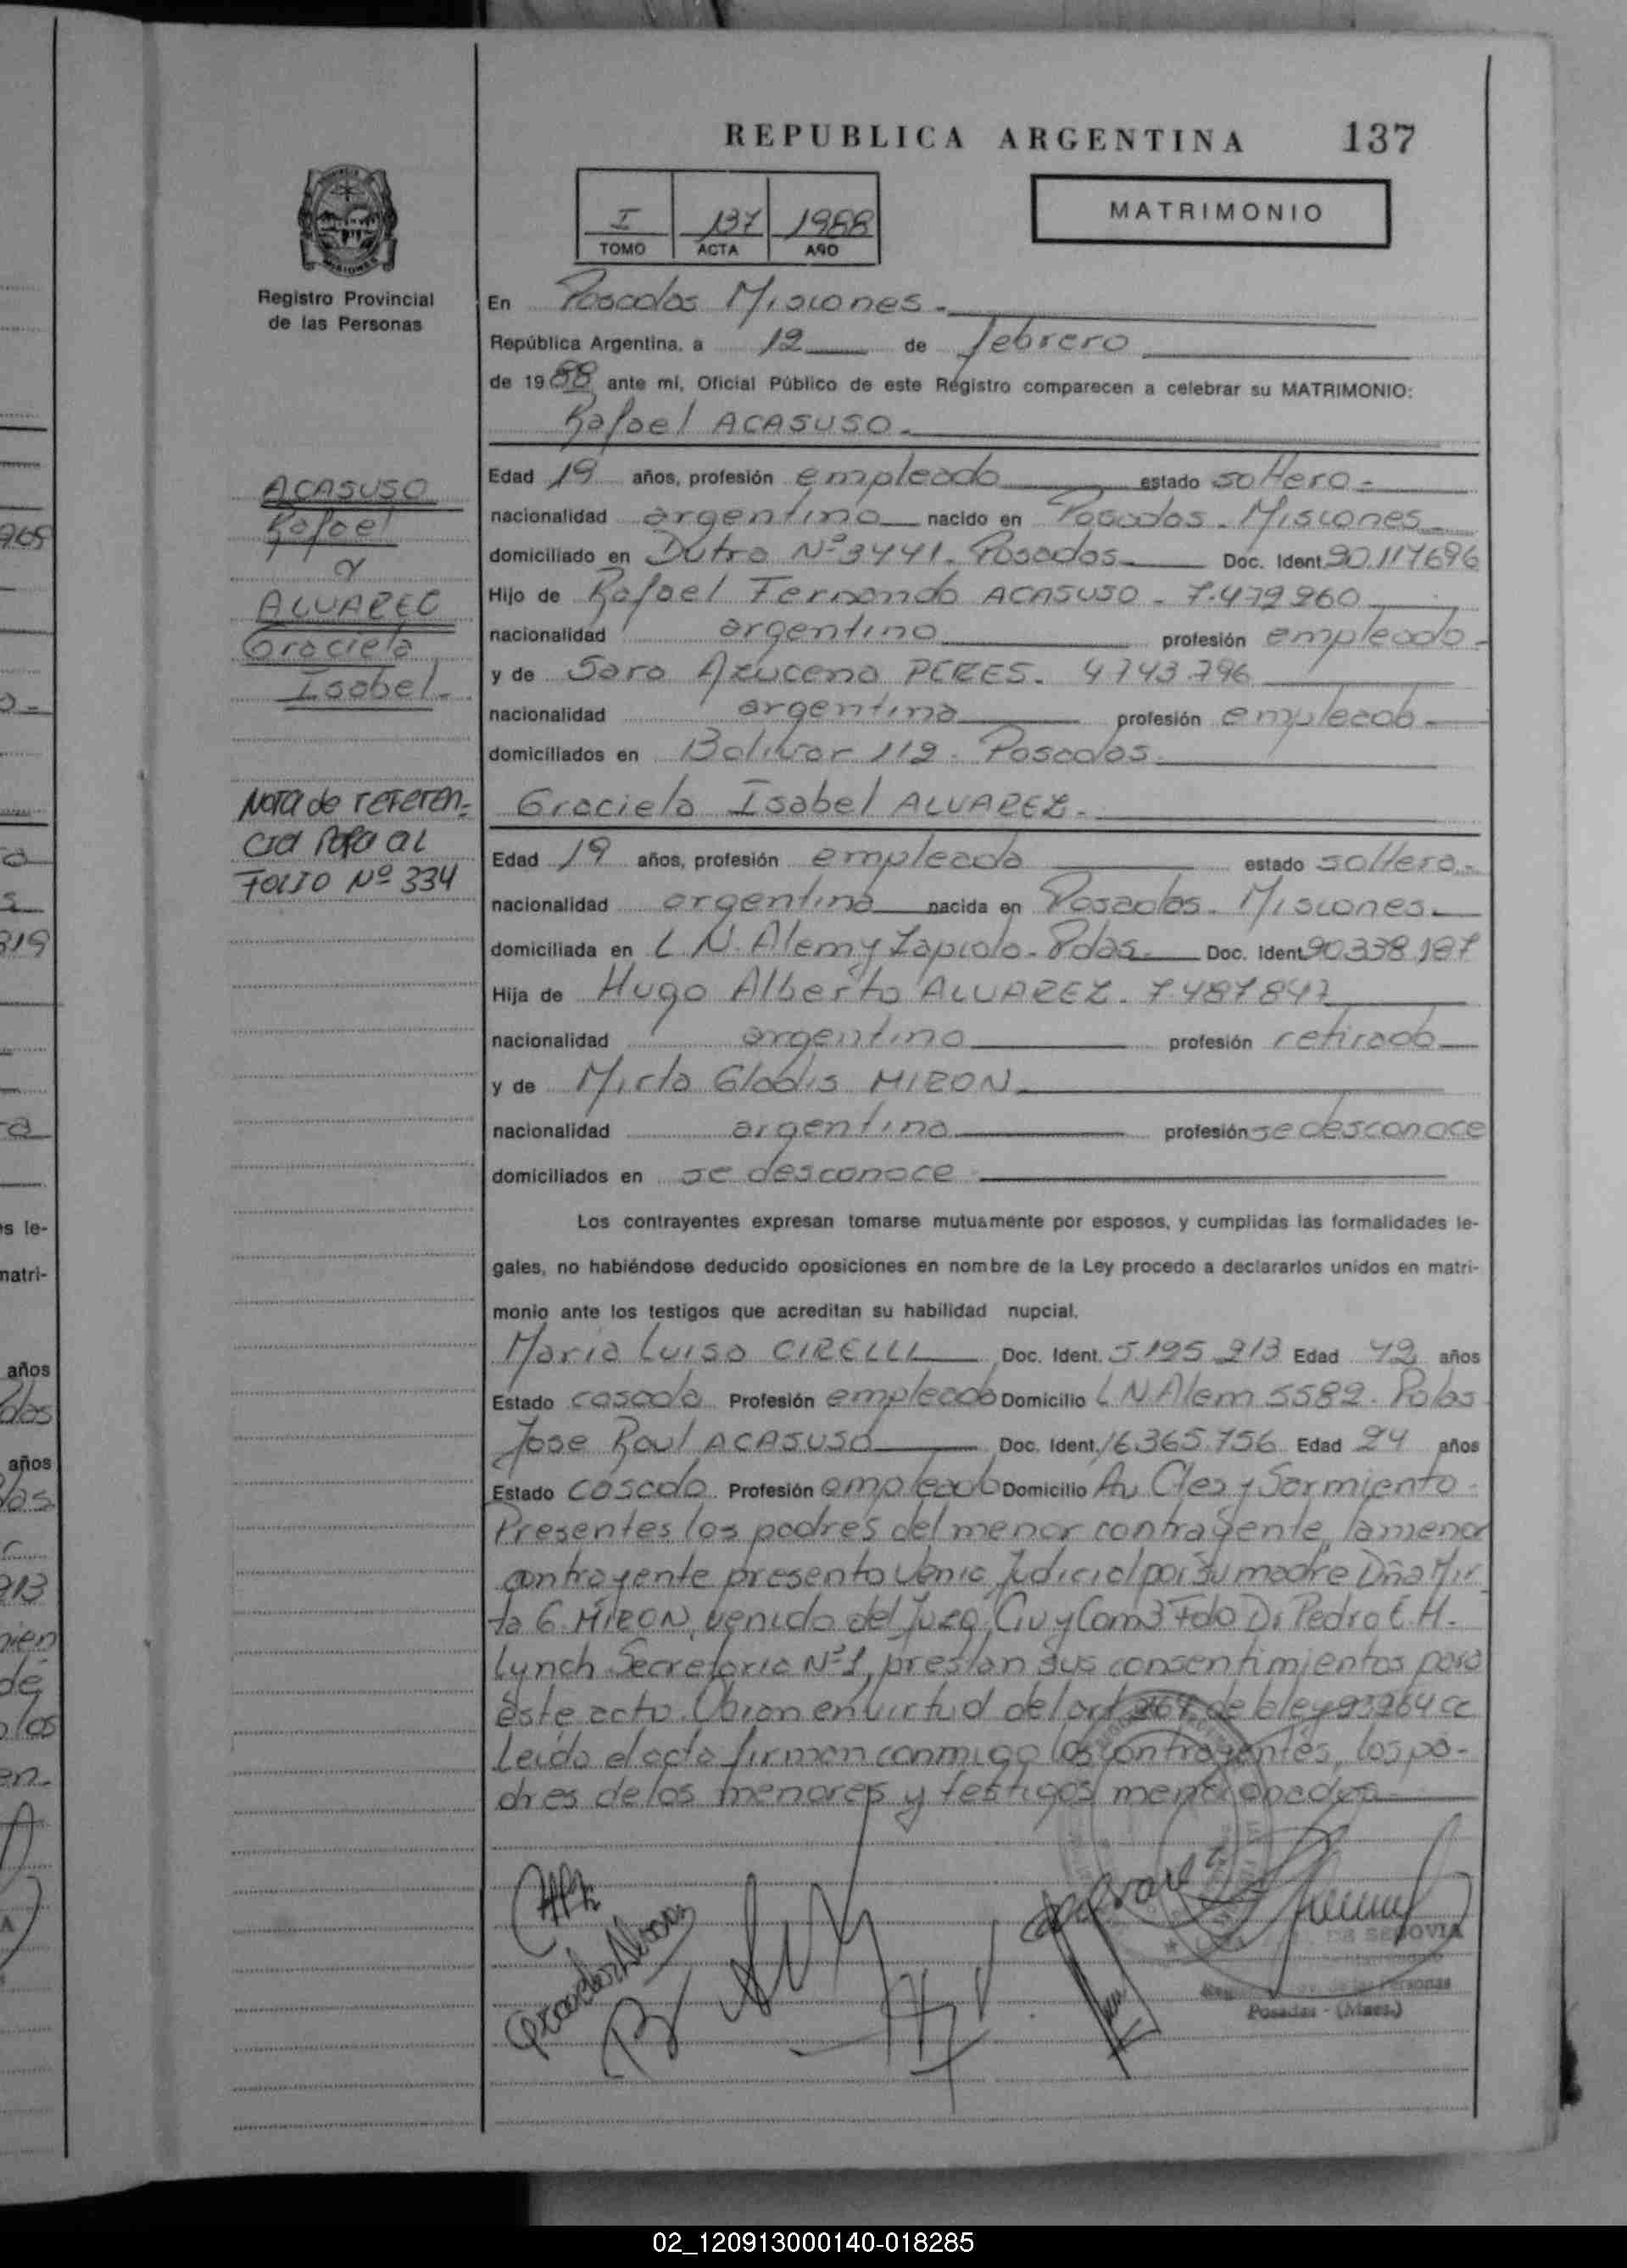 REPUBLICA ARGENTINA 137
I 137 1988
TOMO ACTA AÑO
MATRIMONIO
Registro Provincial
de las Personas
En Posadas Misiones.-
República Argentina, a 12 de febrero
de 1988 ante mí, Oficial Público de este Registro comparecen a celebrar su MATRIMONIO:
Rafael ACASUSO.-
Edad 19 años, profesión empleado estado soltero-
nacionalidad argentino nacido en Posadas. Misiones
domiciliado en Dutra Nº 3441. Posadas Doc. Ident. 20.117696
Hijo de Rafael Fernando ACASUSO - 7.479260
nacionalidad argentino profesión empleado-
y de Sara Azucena PERES. 4743.796
nacionalidad argentina profesión empleada-
domiciliados en Bolivar 112. Posadas.
Graciela Isabel ALVAREZ.-
Edad 19 años, profesión empleada estado soltera.-
nacionalidad argentina nacida en Posadas. Misiones.
domiciliada en L N. Alem y Zapiola. Pdas Doc. Ident 20338187
Hija de Hugo Alberto ALVAREZ. 7487847
nacionalidad argentino profesión retirado
y de Mirta Gladis MIRON
nacionalidad argentina profesión se desconoce
domiciliados en se desconoce
Los contrayentes expresan tomarse mutuamente por esposos, y cumplidas las formalidades le-
gales, no habiéndose deducido oposiciones en nombre de la Ley procedo a declararlos unidos en matri-
monio ante los testigos que acreditan su habilidad nupcial.
Maria Luisa CIRELLI Doc. Ident. 5.195.213 Edad 42 años
Estado casada Profesión empleada Domicilio L N Alem 5582. Pdas
Jose Raul ACASUSO Doc. Ident. 16.365.756 Edad 24 años
Estado casado. Profesión empleado Domicilio Av y Sarmiento.
Presentes los padres del menor contrayente, la menor
contrayente presento Venia Judicial por su madre Dña Mir
ta G. MIRON, venido del Juzg. Civ y Com 3 Fdo Dr Pedro E. H.
Lynch Secretaria Nº 1, prestan sus consentimientos para
este acto. Obran en virtud del art de la ley CC
Leida el acta firman conmigo los contrayentes, los pa-
dres de los menores y testigos mencionados
ACASUSO
Rafael
y
ALVAREZ
Graciela
Isabel-
Nota de referen-
cia Pasa al
FOLIO Nº 334
DE SEGOVIA
de las Personas
Posadas - (Mnes.)
965
319
es le-
matri-
años
das
años
das
213
de
en.
02_120913000140-018285